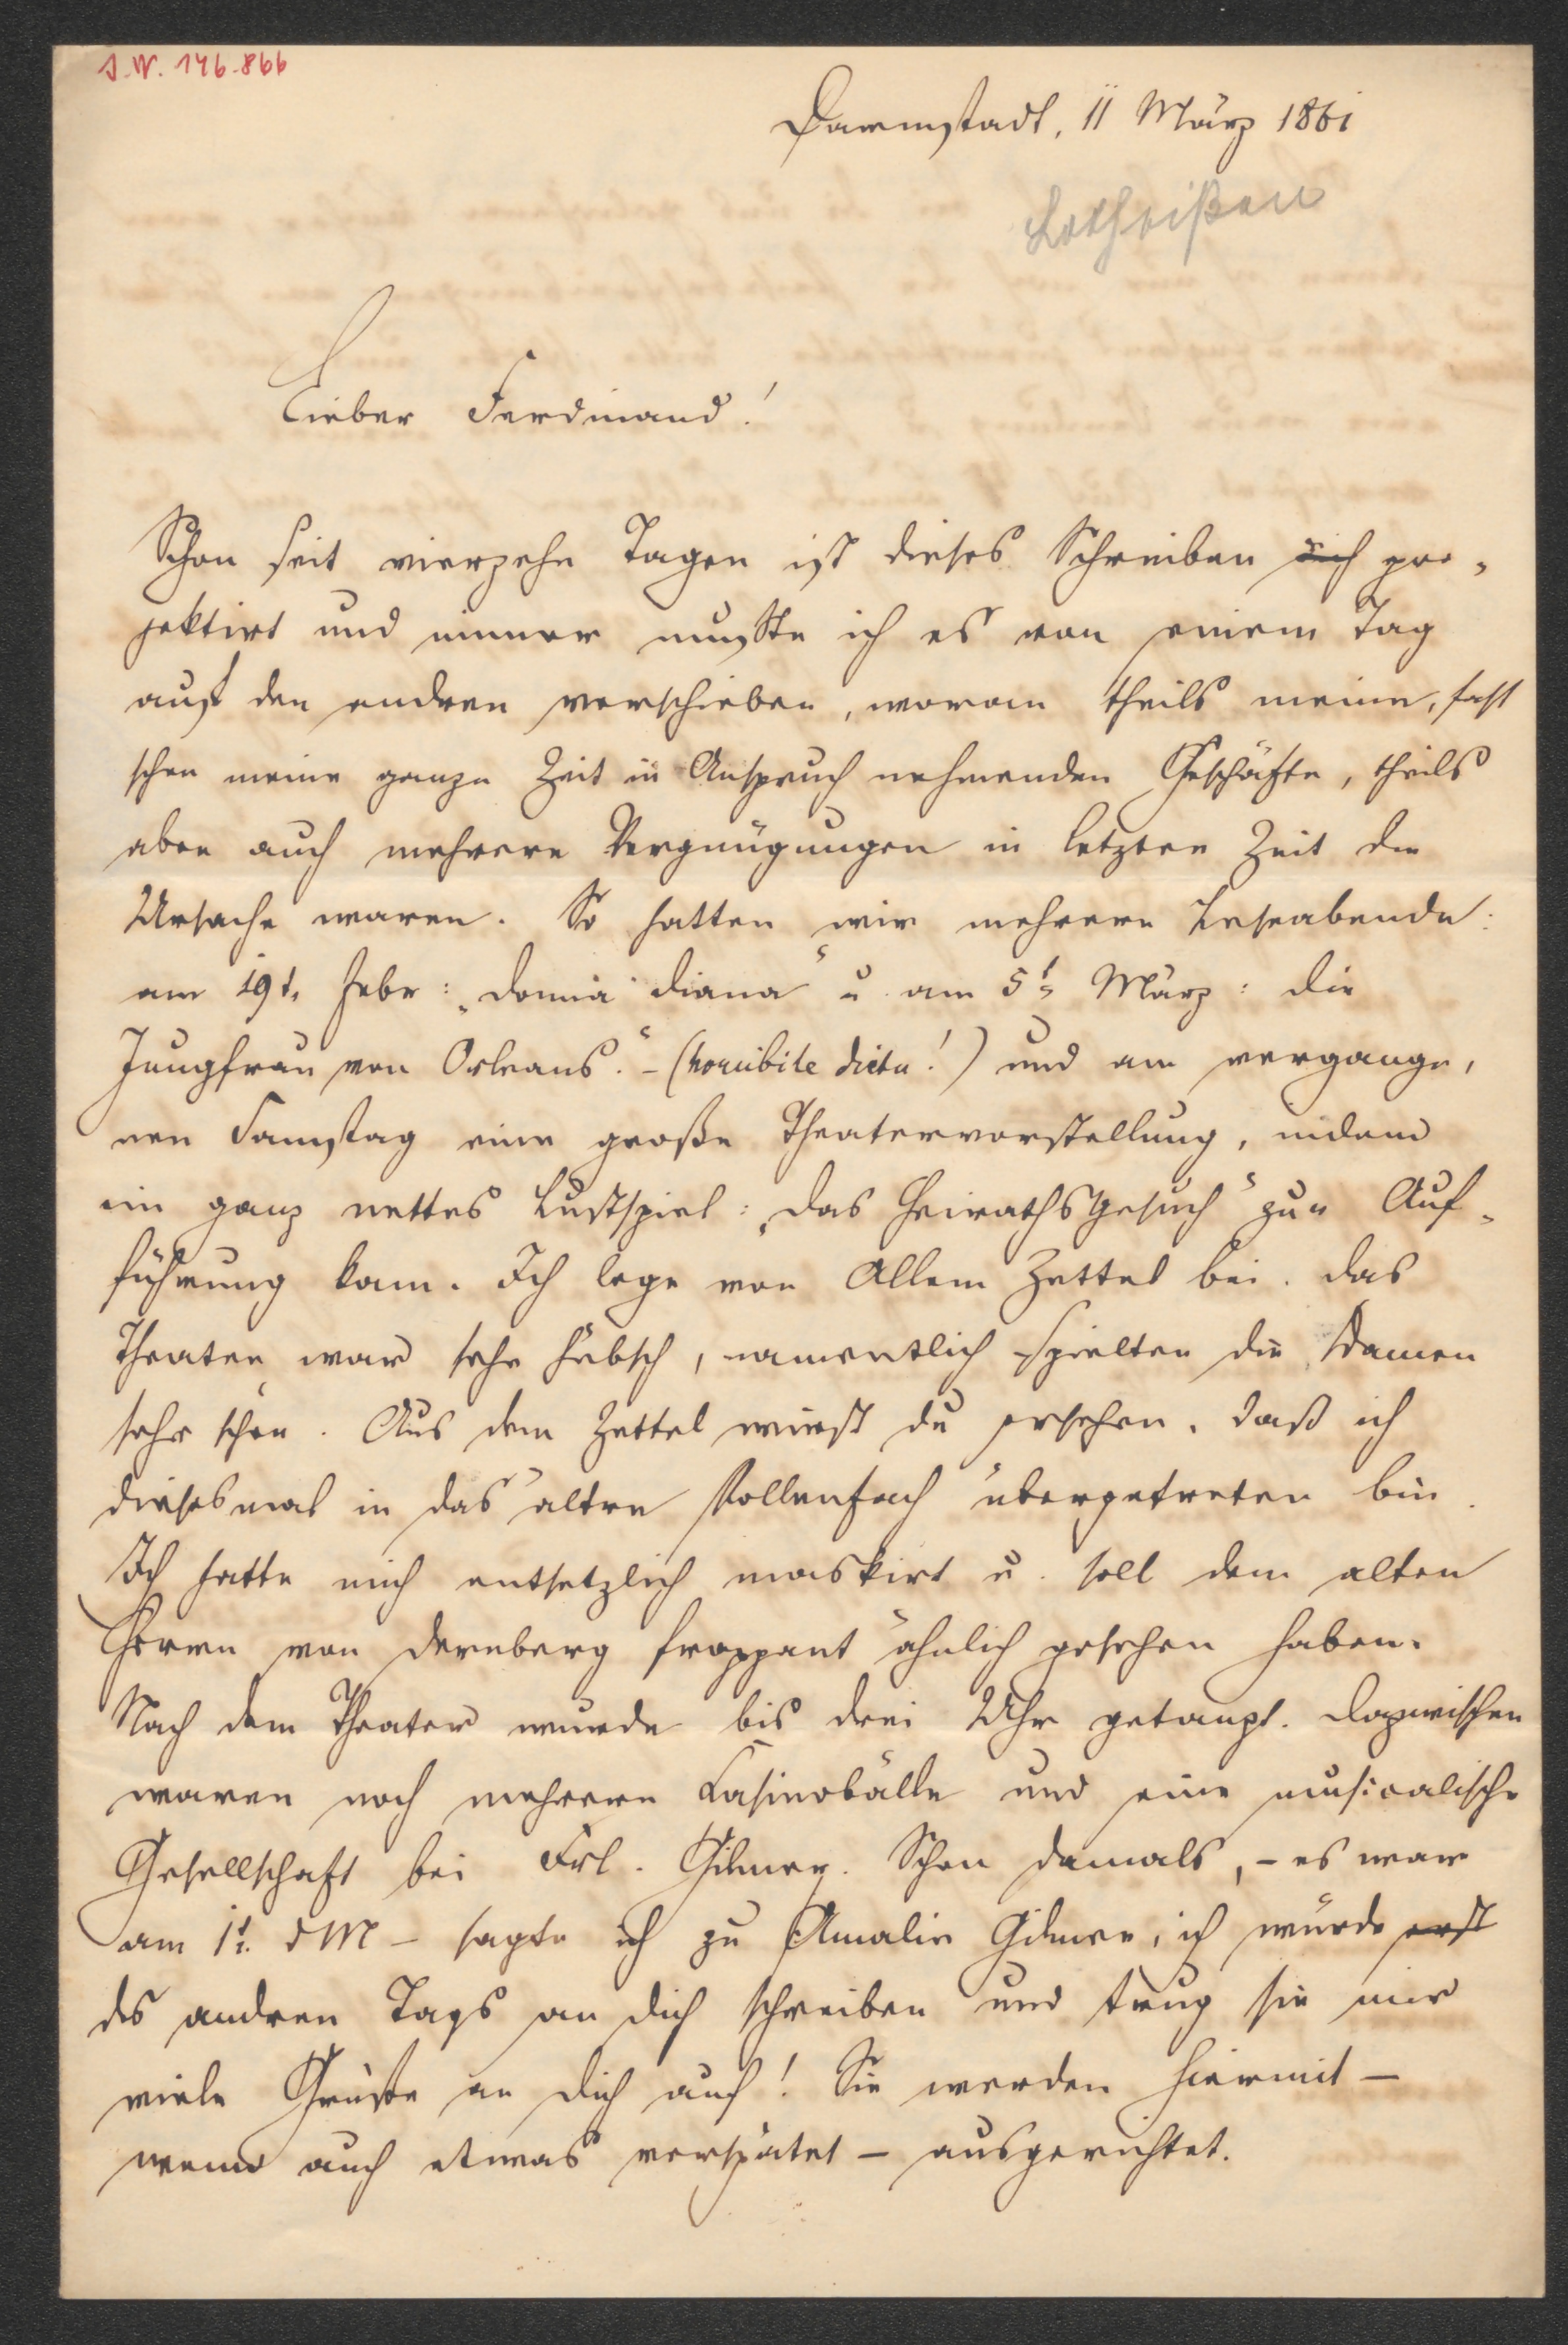 I.N. 146.866
Darmstadt, 11 März 1861
Lotheißen
Lieber Ferdinand!
Schon seit vierzehn Tagen ist dieses Schreiben pro-
jektirt und immer mußte ich es von einem Tag
auf den andren verschieben, woran theils meine, fast
schon meine ganze Zeit in Anspruch nehmenden Geschäfte, theils
aber auch mehrere Vergnügungen in letzter Zeit die
Ursache waren. So hatten wir mehrere Leseabende:
am 19t. Febr: „Donna Diana“ u. am 5t. März: die
Jungfrau von Orleans.“ – (horribile dictu!) und am vergange-
nen Samstag eine große Theatervorstellung, indem
ein ganz nettes Lustspiel: „das Heirathsgesuch“ zur Auf-
führung kam. Ich lege von Allem Zettel bei. Das
Theater war sehr hübsch, namentlich spielten die Damen
sehr schön. Aus dem Zettel wirst du ersehen, daß ich
diesesmal in das ältre Rollenfach übergetreten bin.
Ich hatte mich entsetzlich maskirt u. soll dem alten
Herrn von Dernberg frappant ähnlich gesehen haben.
Nach dem Theater wurde bis drei Uhr getanzt. Dazwischen
waren noch mehrere Casinobälle und eine musicalische
Gesellschaft bei Frl. Gilmer. Schon damals, – es war
am 1t. d M – sagte ich zu Amalie Gilmer, ich würde erst
des andren Tags an dich schreiben und trug sie mir
viele Grüße an dich auf! Sie werden hiermit –
wenn auch etwas verspätet – ausgerichtet.